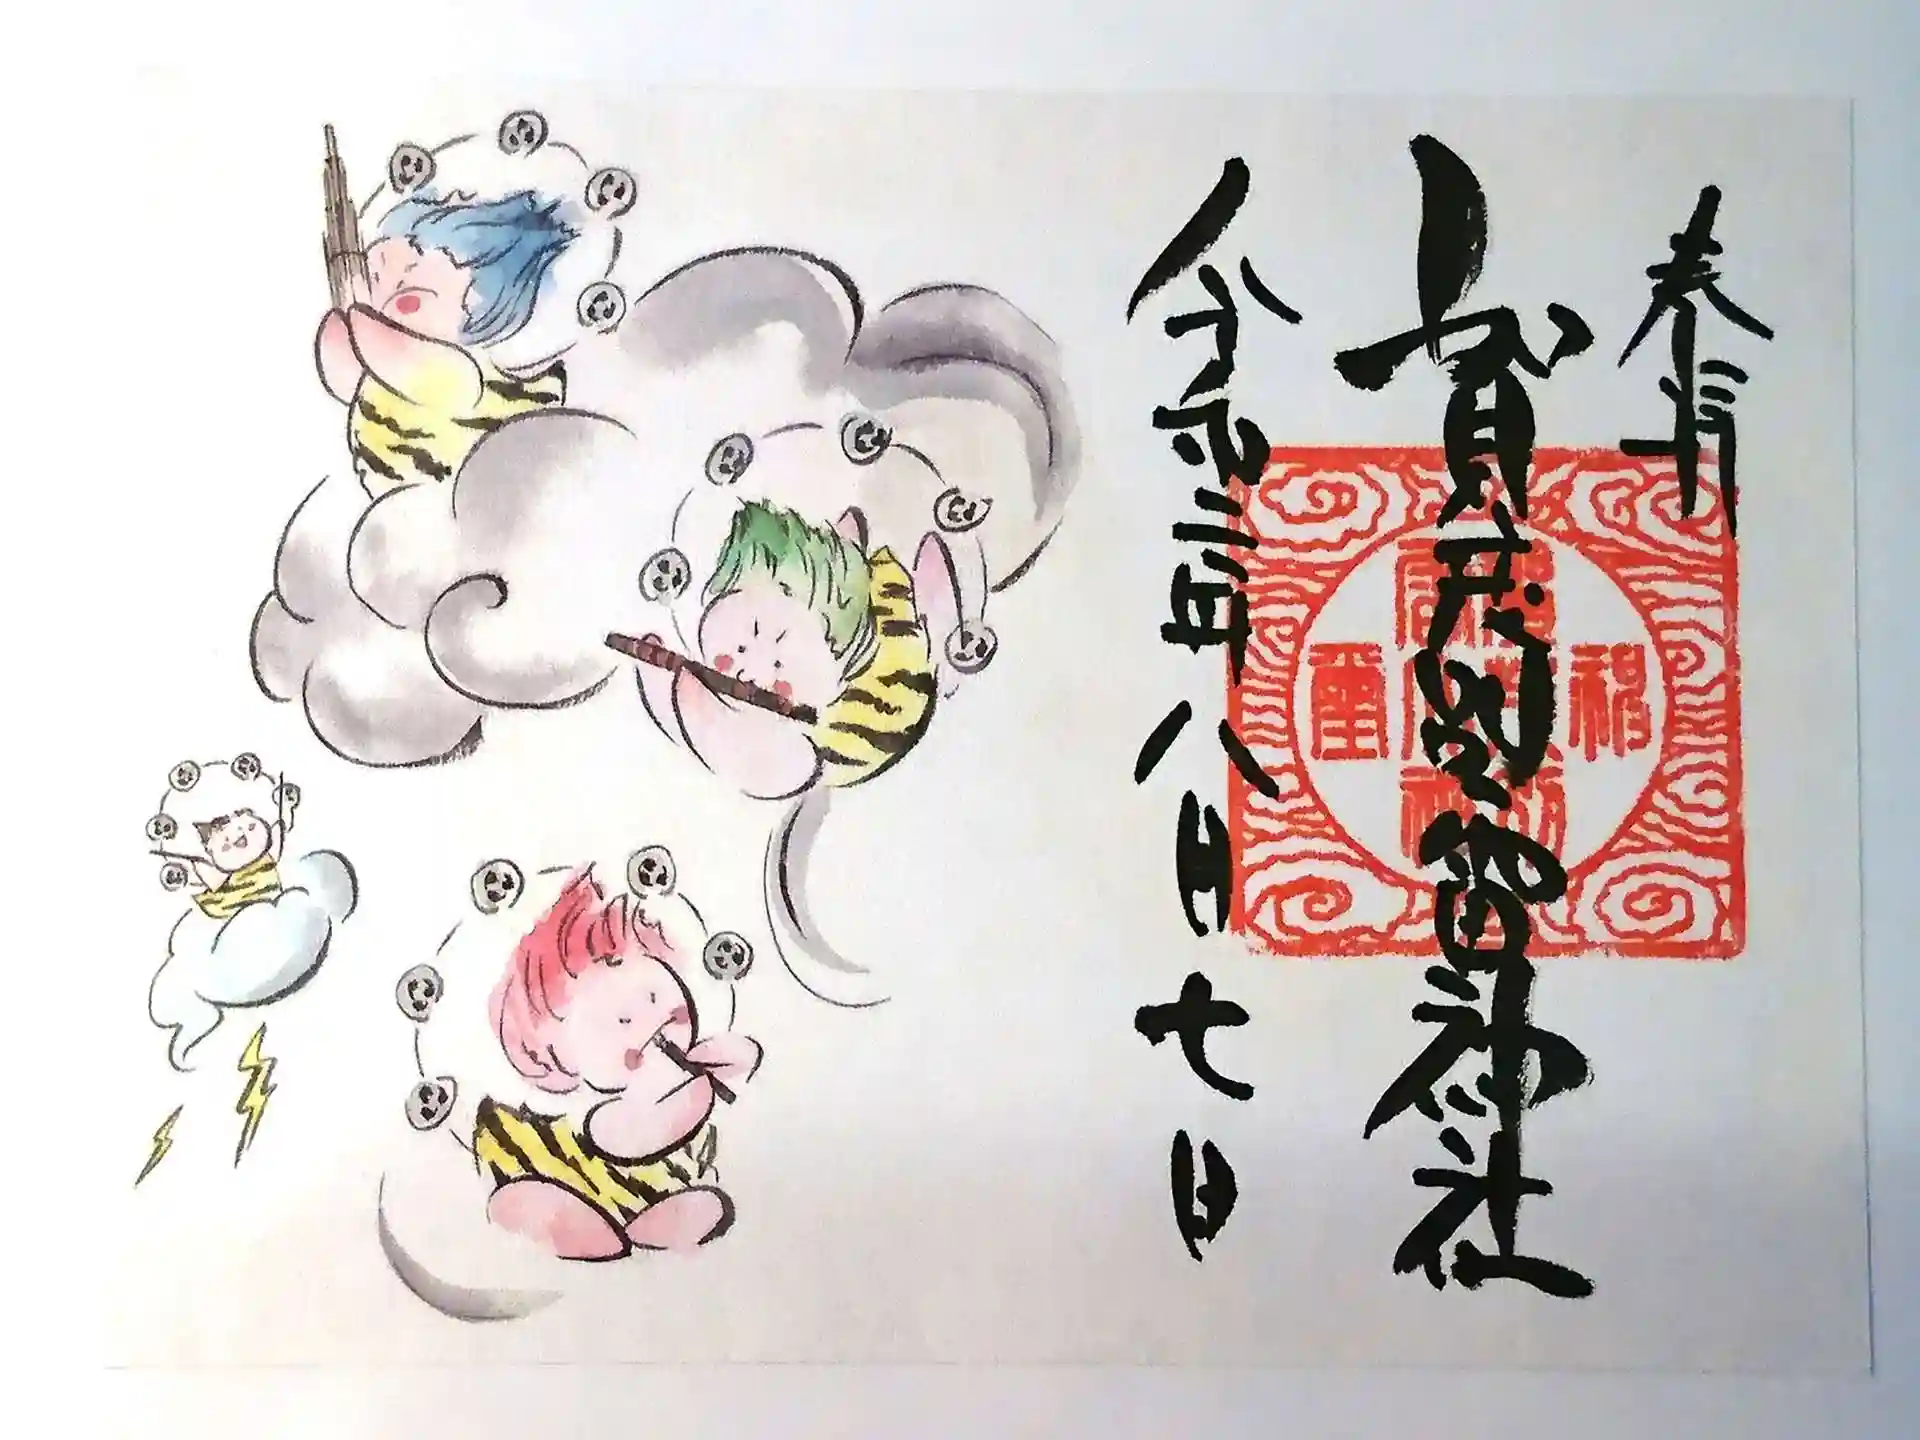 奉拝
賀茂別雷神社
令和三年八月七日